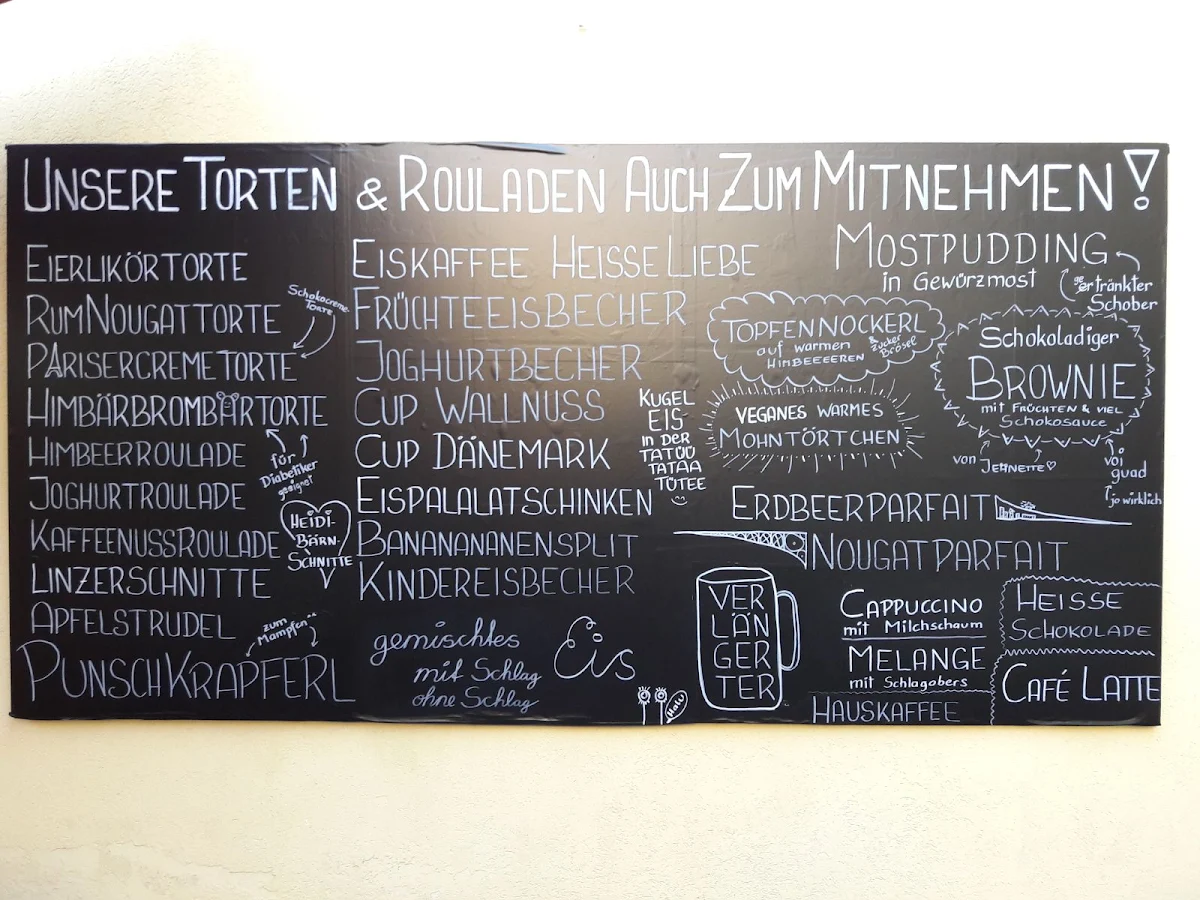 UNSERE TORTEN & ROULADEN AUCH ZUM MITNEHMEN!
EIERLIKÖRTORTE
RUMNOUGATTORTE
Schokocreme-
TORTE
PARISERCREMETORTE
HIMBÄRBROMBÄRTORTE
HIMBEERROULADE
für
Diabetiker
geeignet
JOGHURTROULADE
KAFFEENUSSROULADE
HEIDI-
BÄRN-
SCHNITTE
LINZERSCHNITTE
APFELSTRUDEL
zum
Mampfen
PUNSCHKRAPFERL
EISKAFFEE HEISSE LIEBE
FRÜCHTEEISBECHER
JOGHURTBECHER
CUP WALLNUSS
CUP DÄNEMARK
EISPALALATSCHINKEN
BANANANANENSPLIT
KINDEREISBECHER
KUGEL
EIS
IN DER
TATÜÜ
TATAA
TÜTEE
gemischtes
Eis
mit Schlag
ohne Schlag
Halu
MOSTPUDDING
in Gewürzmost
ge
ertränkter
Schober
TOPFENNOCKERL
auf warmen
HIMBEEEEREN
& Zucker
Brösel
Schokoladiger
BROWNIE
mit FRÜCHTEN & VIEL
Schokosauce
von JEANETTE♡
voi
guad
jo wirklich
VEGANES WARMES
MOHNTÖRTCHEN
ERDBEERPARFAIT
NOUGATPARFAIT
VER
LÄN
GER
TER
CAPPUCCINO
mit Milchschaum
MELANGE
mit Schlagobers
HAUSKAFFEE
HEISSE
SCHOKOLADE
CAFÉ LATTE